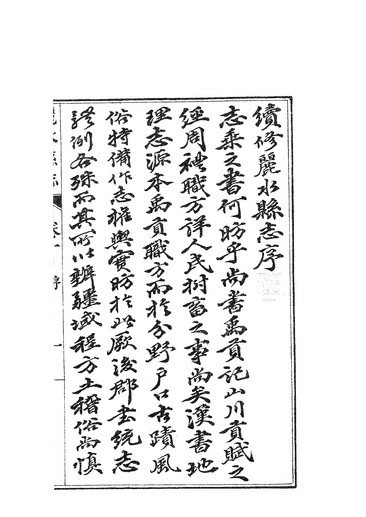 續修麗水縣志序
志乘之書何昉乎尚書禹貢記山川貢賦之
經周禮職方詳人民樹畜之事尚矣漢書地
理志源本禹貢職方而於分野户口古蹟風
俗特備作志權輿實昉於此厥後郡邑統志
體例各殊而其所以辨疆域程方土稽俗尚慎